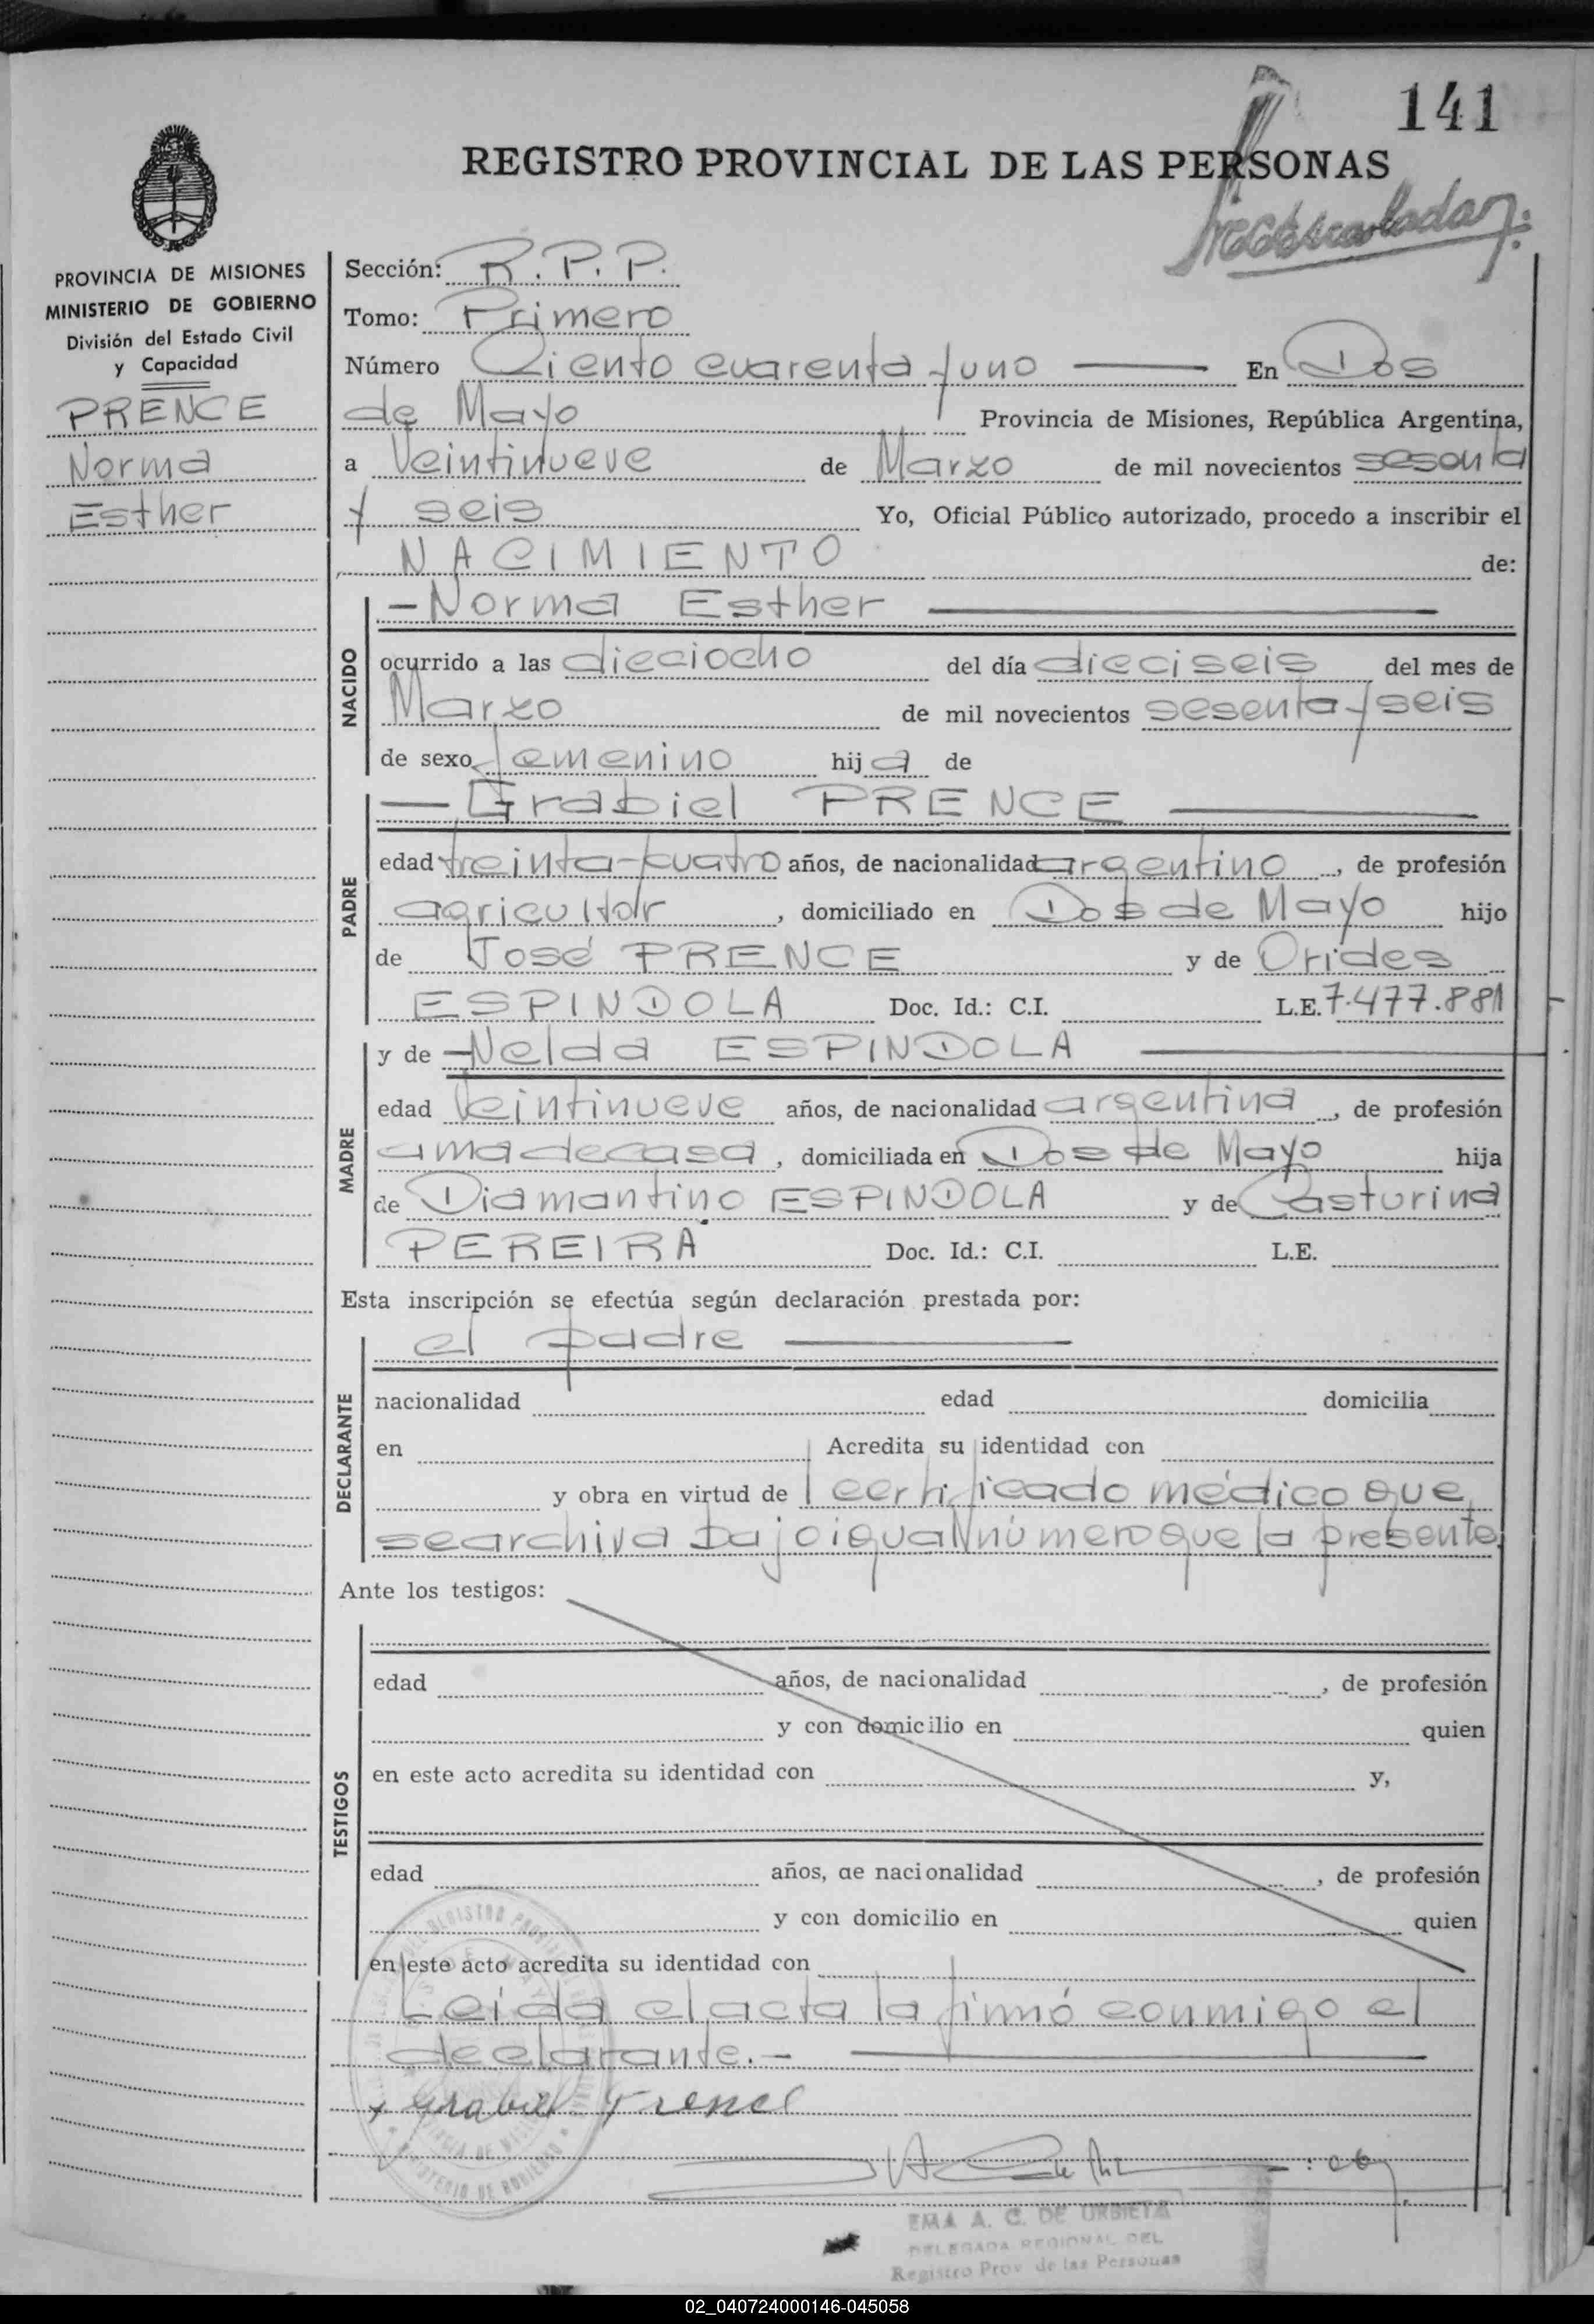 141
REGISTRO PROVINCIAL DE LAS PERSONAS
PROVINCIA DE MISIONES
MINISTERIO DE GOBIERNO
División del Estado Civil
y Capacidad
PRENCE
Norma
Esther
Sección: R. P. P.
Tomo: Primero
Número Ciento cuarenta y uno — En Dos
de Mayo Provincia de Misiones, República Argentina,
a Veintinueve de Marzo de mil novecientos sesenta
y seis Yo, Oficial Público autorizado, procedo a inscribir el
NACIMIENTO de:
NACIDO
- Norma Esther —
ocurrido a las dieciocho del día dieciseis del mes de
Marzo de mil novecientos sesenta y seis
de sexo femenino hij a de
PADRE
— Grabiel PRENCE —
edad treinta y cuatro años, de nacionalidad argentino, de profesión
agricultor, domiciliado en Dos de Mayo hijo
de José PRENCE y de Orides
ESPINDOLA Doc. Id.: C.I. L.E. 7.477.881
MADRE
y de — Nelda ESPINDOLA —
edad Veintinueve años, de nacionalidad argentina, de profesión
ama de casa, domiciliada en Dos de Mayo hija
de Diamantino ESPINDOLA y de Casturina
PEREIRA Doc. Id.: C.I. L.E.
Esta inscripción se efectúa según declaración prestada por:
DECLARANTE
el padre —
nacionalidad edad domicilia
en Acredita su identidad con
y obra en virtud de certificado médico que
se archiva bajo igual número que la presente.
Ante los testigos:
TESTIGOS
edad años, de nacionalidad , de profesión
y con domicilio en quien
en este acto acredita su identidad con y,
edad años, de nacionalidad , de profesión
y con domicilio en quien
en este acto acredita su identidad con
Leída el acta la firmó conmigo el
declarante.- —
x Grabiel Prence
EMA A. C. DE URBIETA
DELEGADA REGIONAL DEL
Registro Prov. de las Personas
02_040724000146-045058